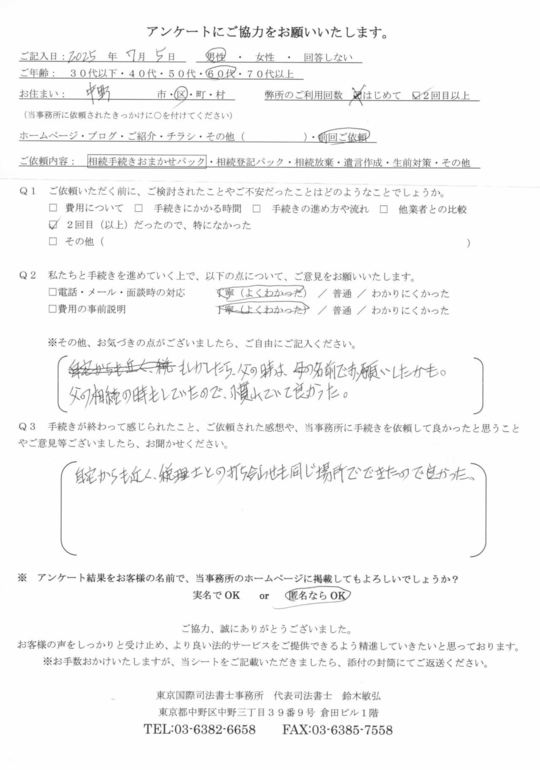 アンケートにご協力をお願いいたします。
ご記入日:2025 年 7月 5日 男性 ・ 女性 ・ 回答しない
ご年齢: 30代以下・40代・50代・60代・70代以上
お住まい: 中野 市・区・町・村 弊所のご利用回数 ☑はじめて ☑2回目以上
(当事務所に依頼されたきっかけに○を付けてください)
ホームページ・ブログ・ご紹介・チラシ・その他( )・前回ご依頼
ご依頼内容: 相続手続きおまかせパック・相続登記パック・相続放棄・遺言作成・生前対策・その他
Q1 ご依頼いただく前に、ご検討されたことやご不安だったことはどのようなことでしょうか。
□ 費用について □ 手続きにかかる時間 □ 手続きの進め方や流れ □ 他業者との比較
☑ 2回目(以上)だったので、特になかった
□ その他( )
Q2 私たちと手続きを進めていく上で、以下の点について、ご意見をお願いいたします。
□電話・メール・面談時の対応 丁寧(よくわかった) / 普通 / わかりにくかった
□費用の事前説明 丁寧(よくわかった) / 普通 / わかりにくかった
※その他、お気づきの点がございましたら、ご自由にご記入ください。
自宅からも近く、税 もしかしたら、父の時は、母の名前でお願いしたかも。
父の相続の時もしていたので、慣れていて良かった。
Q3 手続きが終わって感じられたこと、ご依頼された感想や、当事務所に手続きを依頼して良かったと思うこと
やご意見等ございましたら、お聞かせください。
自宅からも近く、税理士との打ち合わせも同じ場所でできたので良かった。
※ アンケート結果をお客様の名前で、当事務所のホームページに掲載してもよろしいでしょうか?
実名でOK or 匿名ならOK
ご協力、誠にありがとうございました。
お客様の声をしっかりと受け止め、より良い法的サービスをご提供できるよう精進していきたいと思っております。
※お手数おかけいたしますが、当シートをご記載いただきましたら、添付の封筒にてご返送ください。
東京国際司法書士事務所 代表司法書士 鈴木敏弘
東京都中野区中野三丁目39番9号 倉田ビル1階
TEL:03-6382-6658 FAX:03-6385-7558